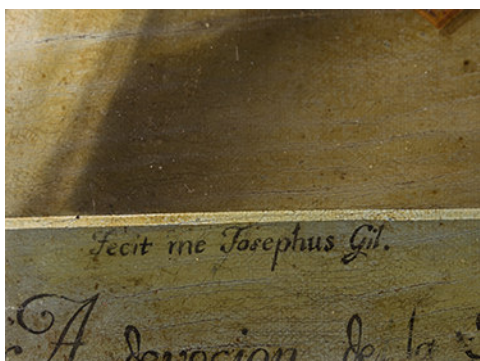 Fecit me Josephus Gil.
A devocion de la